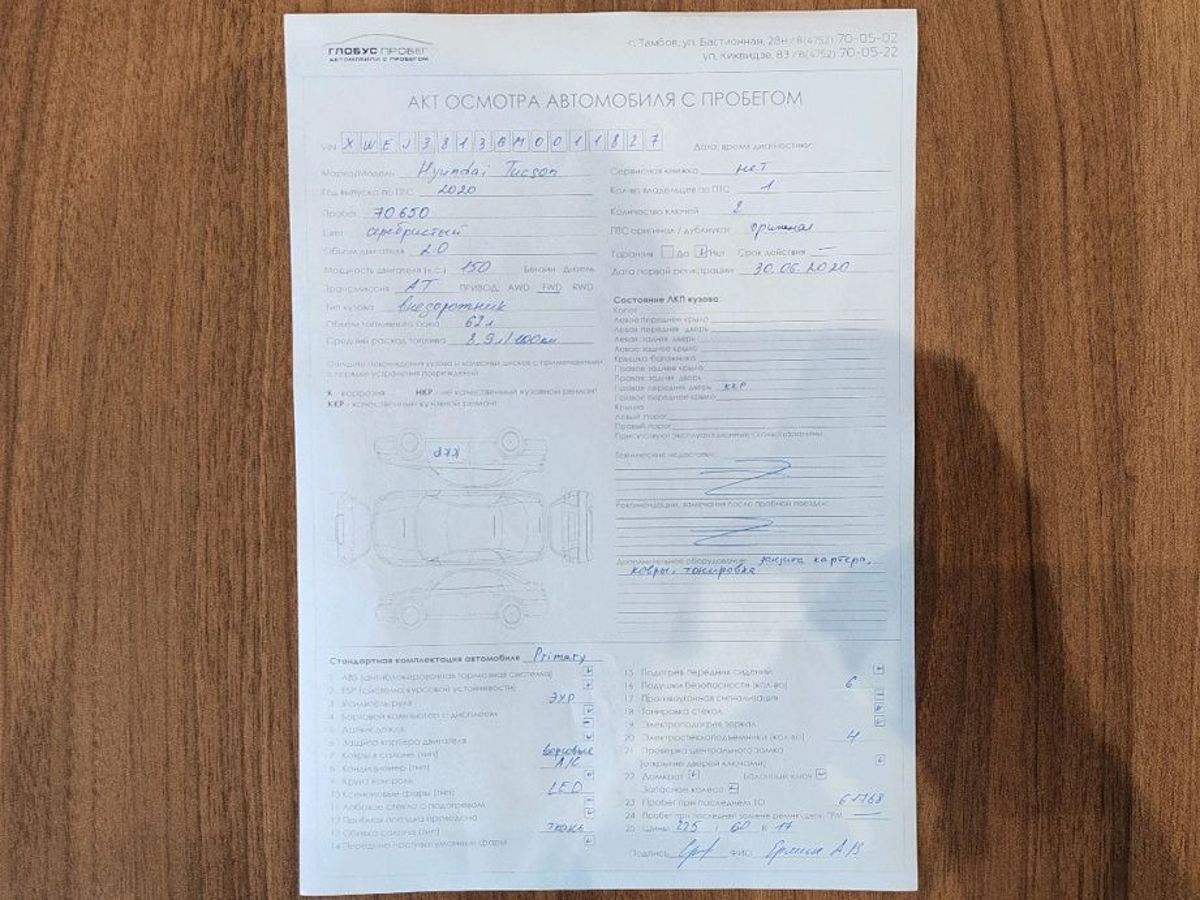 ГЛОБУС ПРОБЕГ
АВТОМОБИЛИ С ПРОБЕГОМ
г. Тамбов, ул. Бастионная, 28н / 8(4752) 70-05-02
ул. Киквидзе, 83 / 8(4752) 70-05-22
АКТ ОСМОТРА АВТОМОБИЛЯ С ПРОБЕГОМ
VIN XWEJ3813BM0011827
Дата, время диагностики:
Марка/Модель Hyundai Tucson
Год выпуска по ПТС 2020
Пробег 70 650
Цвет серебристый
Объем двигателя 2.0
Мощность двигателя (л.с.) 150 Бензин Дизель
Трансмиссия АТ ПРИВОД: AWD FWD RWD
Тип кузова внедорожник
Объем топливного бака 62 л
Средний расход топлива 8,9 л/100км
Сервисная книжка нет
Кол-во владельцев по ПТС 1
Количество ключей 2
ПТС оригинал / дубликат оригинал
Гарантия Да Нет Срок действия —
Дата первой регистрации 30.06.2020
Состояние ЛКП кузова
Капот
Левое переднее крыло
Левая передняя дверь
Левая задняя дверь
Левое заднее крыло
Крышка багажника
Правое заднее крыло
Правая задняя дверь
Правая передняя дверь ККР
Правое переднее крыло
Крыша
Левый порог
Правый порог
Присутствуют эксплуатационные сколы/царапины
К - коррозия НКР - не качественный кузовной ремонт
ККР - качественный кузовной ремонт
ККР
Технические недостатки:
Рекомендации, замечания после пробной поездки:
Дополнительное оборудование: защита картера,
ковры, тонировка
Стандартная комплектация автомобиля Primary
1 ABS (антиблокировочная тормозная система)
2 ESP (система курсовой устойчивости)
3 Усилитель руля ЭУР
4 Бортовой компьютер с дисплеем
5 Датчик дождя
6 Защита картера двигателя
7 Ковры в салоне (тип) ворсовые
8 Кондиционер (тип) A/C
9 Круиз контроль
10 Ксеноновые фары (тип) LED
11 Лобовое стекло с подогревом
12 Пробная поездка проводена
13 Обивка салона (тип) ткань
14 Передние противотуманные фары
15 Подогрев передних сидений
16 Подушки безопасности (кол-во) 6
17 Противоугонная сигнализация
18 Тонировка стекол
19 Электроподогрев зеркал
20 Электростеклоподъемники (кол-во) 4
21 Проверка центрального замка
(открытие дверей ключами)
22 Домкрат Балонный ключ
Запасное колесо
23 Пробег при последнем ТО 61768
24 Пробег при последней замене ремня/цепи ГРМ —
25 Шины 225 / 60 R 17
Подпись ФИО